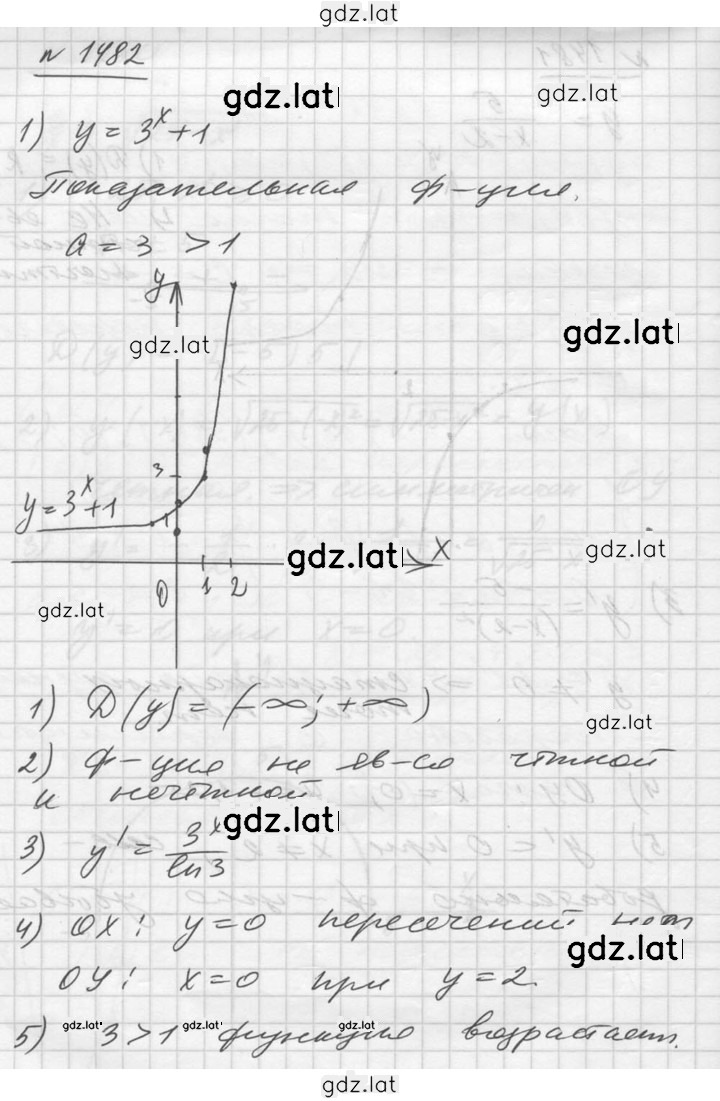 gdz.lat
№ 1482
gdz.lat
gdz.lat
1) y = 3^x + 1
Показательная ф-ция.
a = 3 > 1
y
gdz.lat
gdz.lat
3
y = 3^x + 1
1
gdz.lat
x
gdz.lat
0 1 2
gdz.lat
1) D(y) = (-∞; +∞)
gdz.lat
2) ф-ция не яв-ся чётной
и нечётной
gdz.lat
3) y' = 3^x / ln 3
4) OX: y = 0 пересечений нет
gdz.lat
OY: x = 0 при y = 2.
5) 3 > 1 функция возрастает.
gdz.lat gdz.lat gdz.lat
gdz.lat